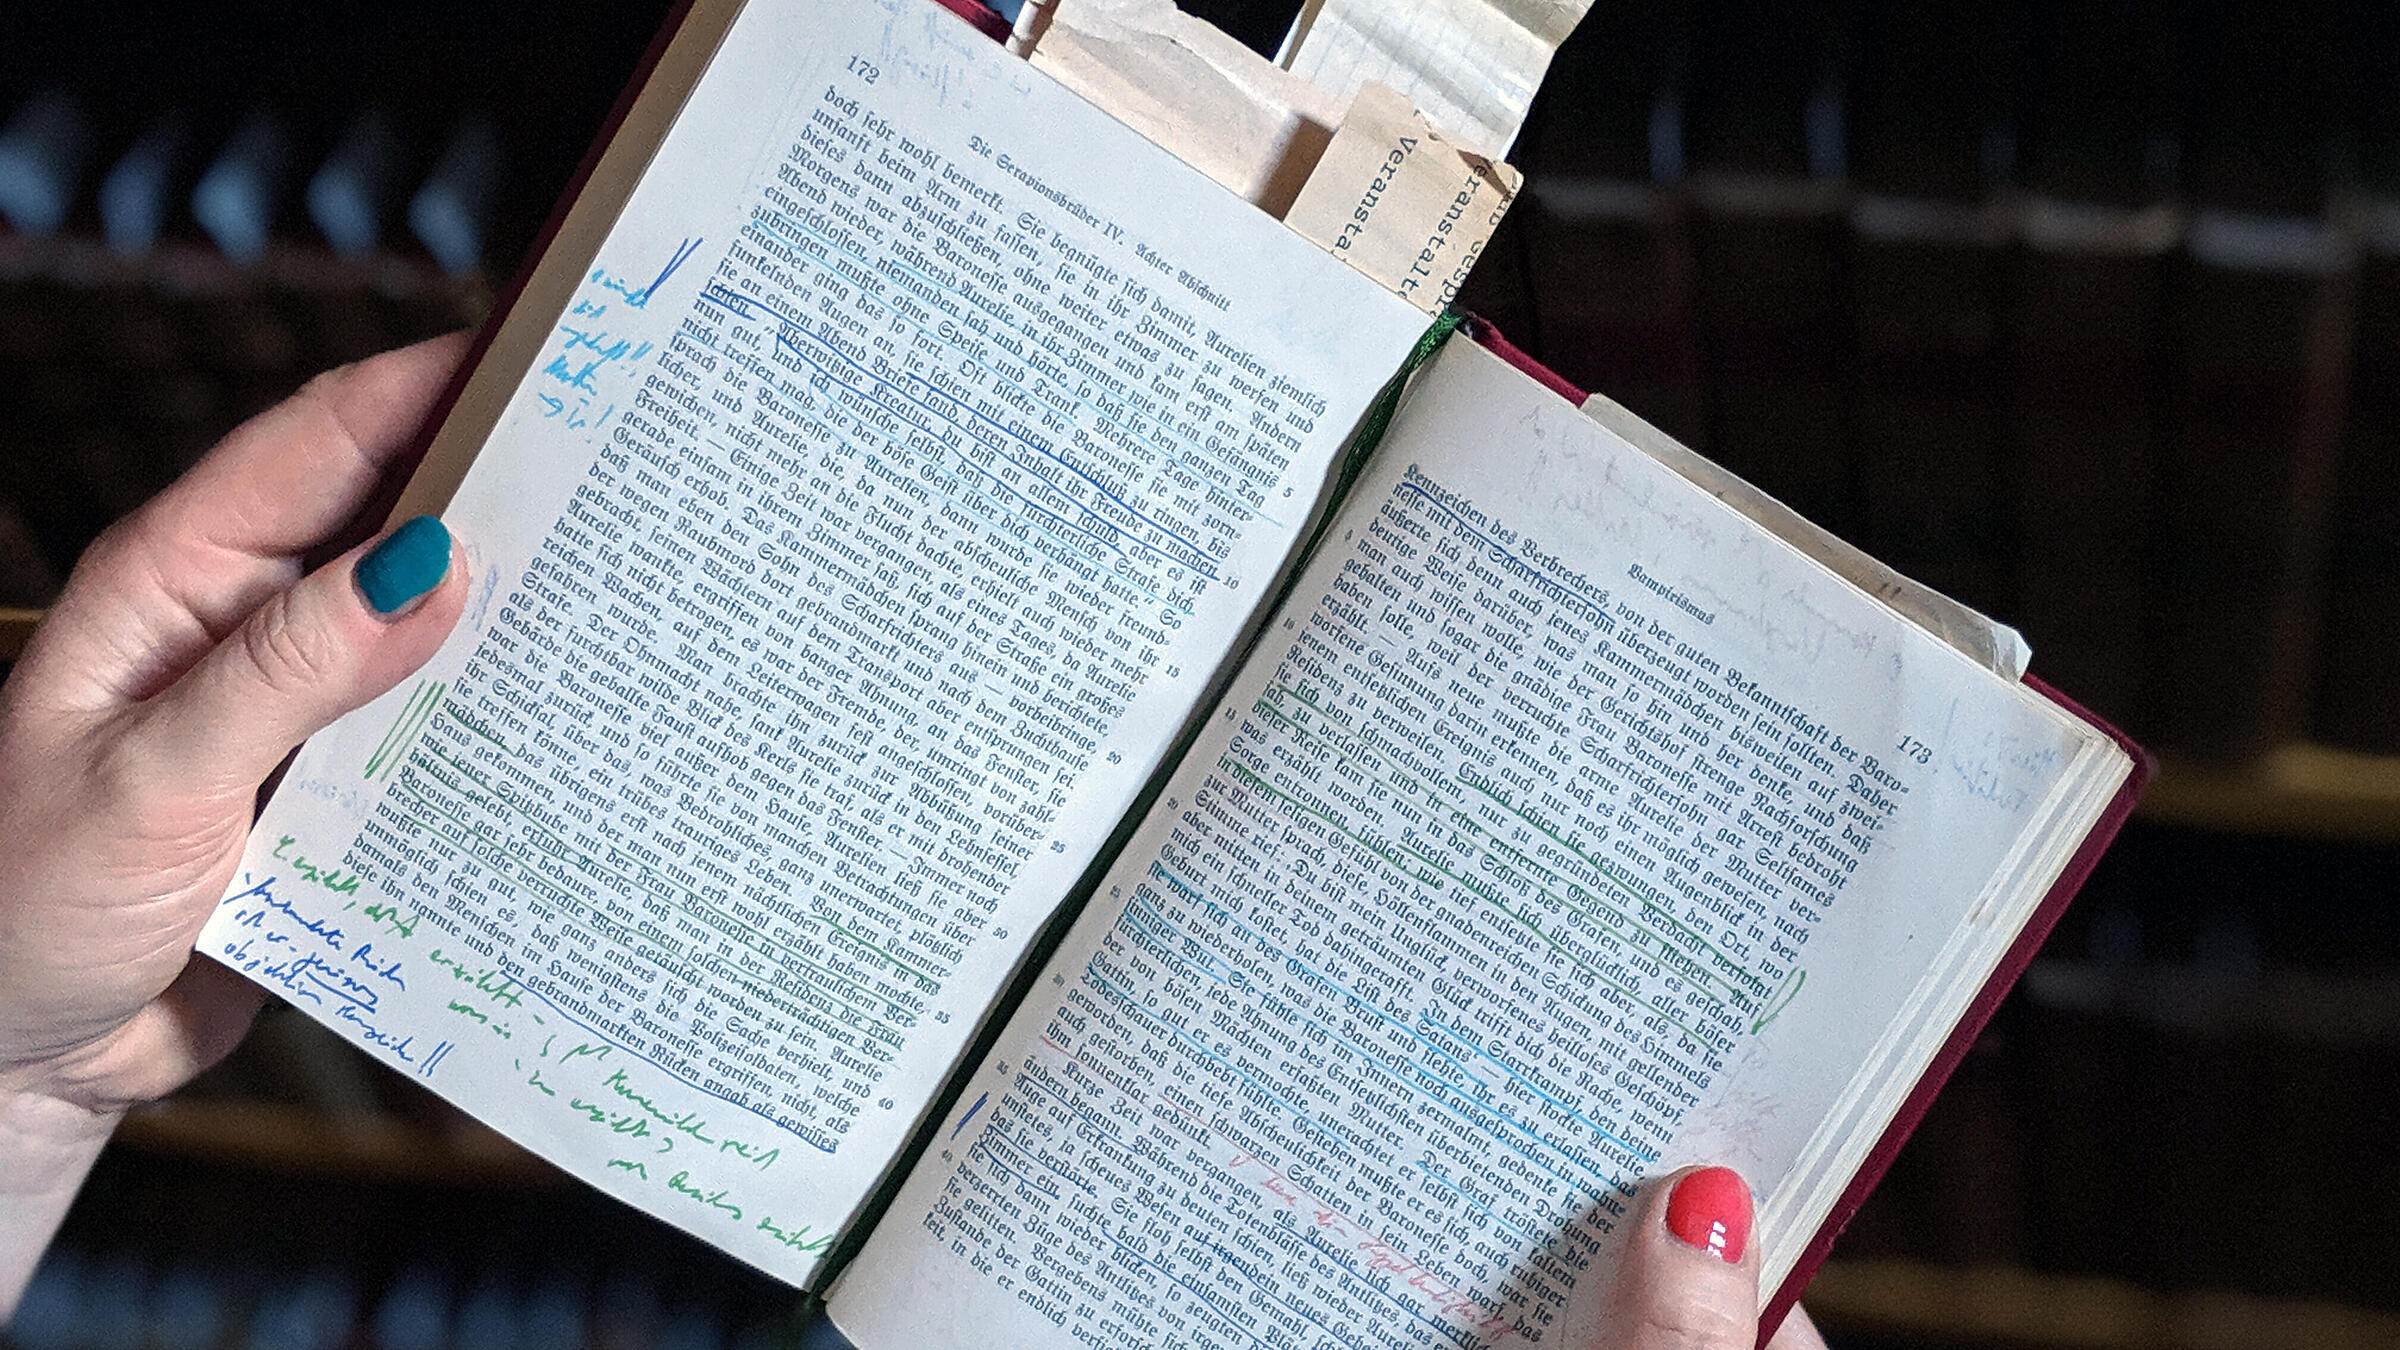 172
Die Serapionsbrüder IV. Achter Abschnitt
doch sehr wohl bemerkt. Sie begnügte sich damit, Aurelien ziemlich
unsanft beim Arm zu fassen, sie in ihr Zimmer zu werfen und
dieses dann abzuschließen, ohne weiter etwas zu sagen. Andern
Morgens war die Baronesse ausgegangen und kam erst am späten
Abend wieder, während Aurelie, in ihr Zimmer wie in ein Gefängnis
eingeschlossen, niemanden sah und hörte, so daß sie den ganzen Tag 5
zubringen mußte ohne Speise und Trank. Mehrere Tage hinter-
einander ging das so fort. Oft blickte die Baronesse sie mit zorn-
funkelnden Augen an, sie schien mit einem Entschluß zu ringen, bis
sie an einem Abend Briefe fand, deren Inhalt ihr Freude zu machen
schien. „Aberwitzige Kreatur, du bist an allem schuld, aber es ist 10
nun gut, und ich wünsche selbst, daß die fürchterliche Strafe dich
nicht treffen mag, die der böse Geist über dich verhängt hatte.“ So
sprach die Baronesse zu Aurelien, dann wurde sie wieder freund-
licher, und Aurelie, die, da nun der abscheuliche Mensch von ihr
gewichen, nicht mehr an die Flucht dachte, erhielt auch wieder mehr 15
Freiheit. — Einige Zeit war vergangen, als eines Tages, da Aurelie
gerade einsam in ihrem Zimmer saß, sich auf der Straße ein großes
Geräusch erhob. Das Kammermädchen sprang hinein und berichtete,
daß man eben den Sohn des Scharfrichters aus — vorbeibringe,
der wegen Raubmord dort gebrandmarkt und nach dem Zuchthause 20
gebracht, seinen Wächtern auf dem Transport aber entsprungen sei.
Aurelie wankte, ergriffen von banger Ahnung, an das Fenster, sie
hatte sich nicht betrogen, es war der Fremde, der, umringt von zahl-
reichen Wachen, auf dem Leiterwagen fest angeschlossen, vorüber-
gefahren wurde. Man brachte ihn zurück zur Abbüßung seiner 25
Strafe. Der Ohnmacht nahe, sank Aurelie zurück in den Lehnsessel,
als der furchtbar wilde Blick des Kerls sie traf, als er mit drohender
Gebärde die geballte Faust aufhob gegen das Fenster. — Immer noch
war die Baronesse viel außer dem Hause, Aurelien ließ sie aber
jedesmal zurück, und so führte sie von manchen Betrachtungen über 30
ihr Schicksal, über das, was Bedrohliches, ganz unerwartet, plötzlich
sie treffen könne, ein trübes trauriges Leben. Von dem Kammer-
mädchen, das übrigens erst nach jenem nächtlichen Ereignis in das
Haus gekommen, und der man nun erst wohl erzählt haben mochte,
wie jener Spitzbube mit der Frau Baronesse in vertraulichem Ver- 35
hältnis gelebt, erfuhr Aurelie, daß man in der Residenz die Frau
Baronesse gar sehr bedaure, von einem solchen niederträchtigen Ver-
brecher auf solche verruchte Weise getäuscht worden zu sein. Aurelie
wußte nur zu gut, wie ganz anders sich die Sache verhielt, und
unmöglich schien es, daß wenigstens die Polizeisoldaten, welche 40
damals den Menschen im Hause der Baronesse ergriffen, nicht, als
diese ihn nannte und den gebrandmarkten Rücken angab als gewisses
Veranstalt
Vampirismus
173
Kennzeichen des Verbrechers, von der guten Bekanntschaft der Baro-
nesse mit dem Scharfrichtersohn überzeugt worden sein sollten. Daher
äußerte sich denn auch jenes Kammermädchen bisweilen auf zwei-
deutige Weise darüber, was man so hin und her denke, und daß
man auch wissen wolle, wie der Gerichtshof strenge Nachforschung
gehalten und sogar die gnädige Frau Baronesse mit Arrest bedroht
haben solle, weil der verruchte Scharfrichtersohn gar Seltsames
erzählt. — Aufs neue mußte die arme Aurelie der Mutter ver-
10 worfene Gesinnung darin erkennen, daß es ihr möglich gewesen, nach
jenem entsetzlichen Ereignis auch nur noch einen Augenblick in der
Residenz zu verweilen. Endlich schien sie gezwungen, den Ort, wo
sie sich von schmachvollem, nur zu gegründeten Verdacht verfolgt
sah, zu verlassen und in eine entfernte Gegend zu fliehen. Auf
15 dieser Reise kam sie nun in das Schloß des Grafen, und es geschah,
was erzählt worden. Aurelie mußte sich überglücklich, aller böser
Sorge entronnen fühlen; wie tief entsetzte sie sich aber, als, da sie
in diesem seligen Gefühl von der gnadenreichen Schickung des Himmels
zur Mutter sprach, diese, Höllenflammen in den Augen, mit gellender
20 Stimme rief: „Du bist mein Unglück, verworfenes heilloses Geschöpf,
aber mitten in deinem geträumten Glück trifft dich die Rache, wenn
mich ein schneller Tod dahingerafft. In dem Starrkrampf, den deine
Geburt mich kostet, hat die List des Satans“ — hier stockte Aurelie,
sie warf sich an des Grafen Brust und flehte, ihr es zu erlassen, das
25 ganz zu wiederholen, was die Baronesse noch ausgesprochen in wahn-
sinniger Wut. Sie fühle sich im Innern zermalmt, gedenke sie der
fürchterlichen, jede Ahnung des Entsetzlichsten überbietenden Drohung
der von bösen Mächten erfaßten Mutter. Der Graf tröstete die
Gattin, so gut er es vermochte, unerachtet er selbst sich von kaltem
30 Todesschauer durchbebt fühlte. Gestehen mußte er es sich, auch ruhiger
geworden, daß die tiefe Abscheulichkeit der Baronesse doch, war sie
auch gestorben, einen schwarzen Schatten in sein Leben warf, das
ihm sonnenklar gedünkt.
Kurze Zeit war vergangen, als Aurelie sich gar merklich
35 ändern begann. Während die Totenblässe des Antlitzes, das
Auge auf Erkrankung zu deuten schien, ließ wieder Aureli
unstetes, ja scheues Wesen auf irgendein neues Geheim
das sie verstörte. Sie floh selbst den Gemahl,
Zimmer ein, suchte bald die einsamsten
40 sie sich dann wieder blicken, so zeugten
verzerrten Züge des Antlitzes von irgen
sie gelitten. Vergebens mühte sich
Zustande der Gattin zu erforsch
keit, in die er endlich verfi